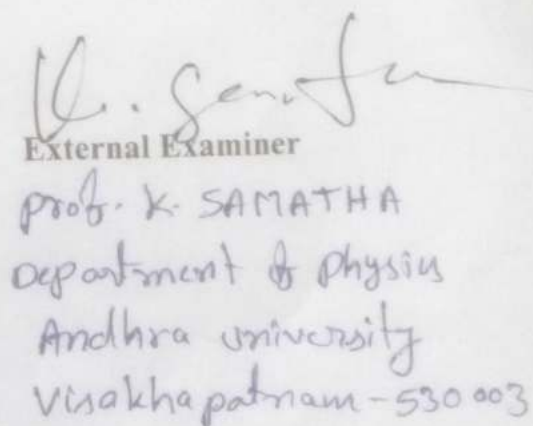 K. Samatha
External Examiner
prof. K. SAMATHA
Department of physics
Andhra university
Visakhapatnam - 530 003